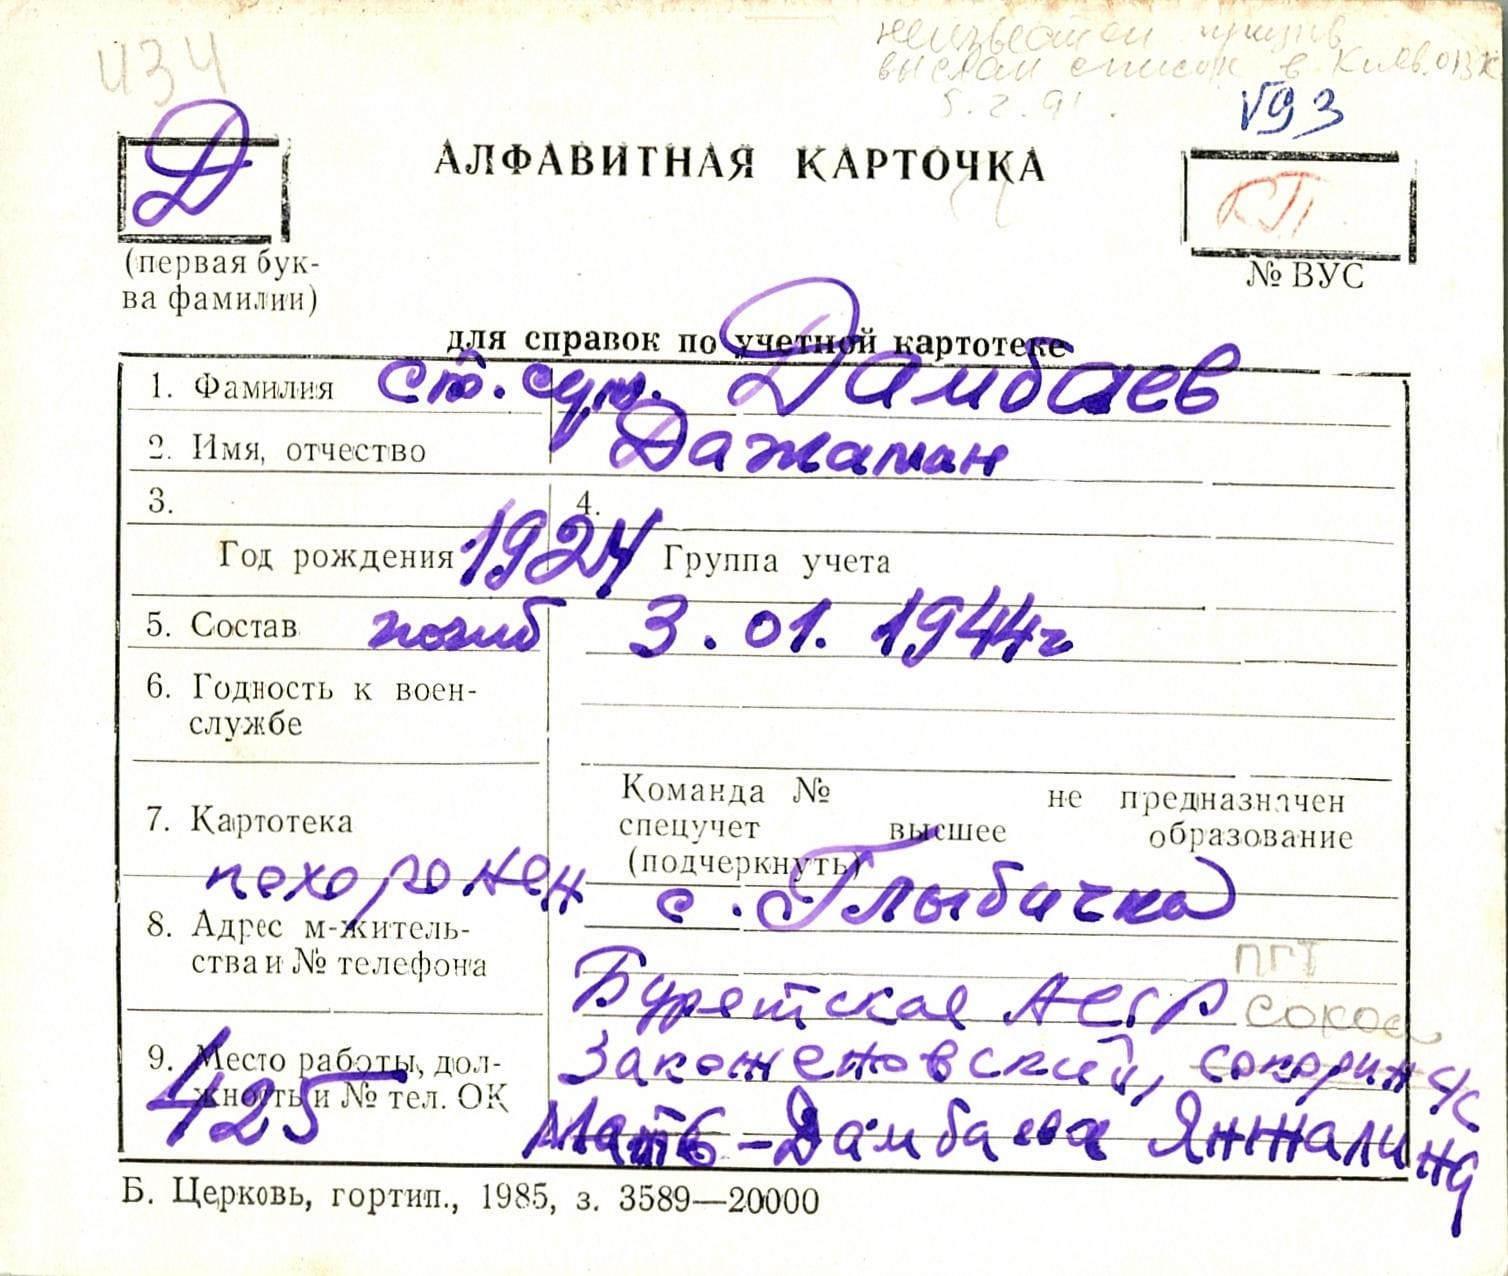 434
неизвестен призыв
выслан список в Киев. ОВК
5.2.91.
V93
Д
АЛФАВИТНАЯ КАРТОЧКА
КП
(первая бук-
ва фамилии)
№ ВУС
для справок по учетной картотеке
1. Фамилия ст. сул. Дамбаев
2. Имя, отчество Дажаман
3. 4.
Год рождения 1924 Группа учета
5. Состав погиб 3.01.1944г
6. Годность к воен-
службе
Команда № не предназначен
7. Картотека спецучет высшее образование
(подчеркнуть)
похоронен с. Глыбичка
8. Адрес м-житель-
ства и № телефона
пгт
Бурятская АССР
9. Место работы, дол-
жность и № тел. ОК
Закоженовский, сокорин с/с
425
Мать - Дамбаева Янжалина
Б. Церковь, гортип., 1985, з. 3589—20000